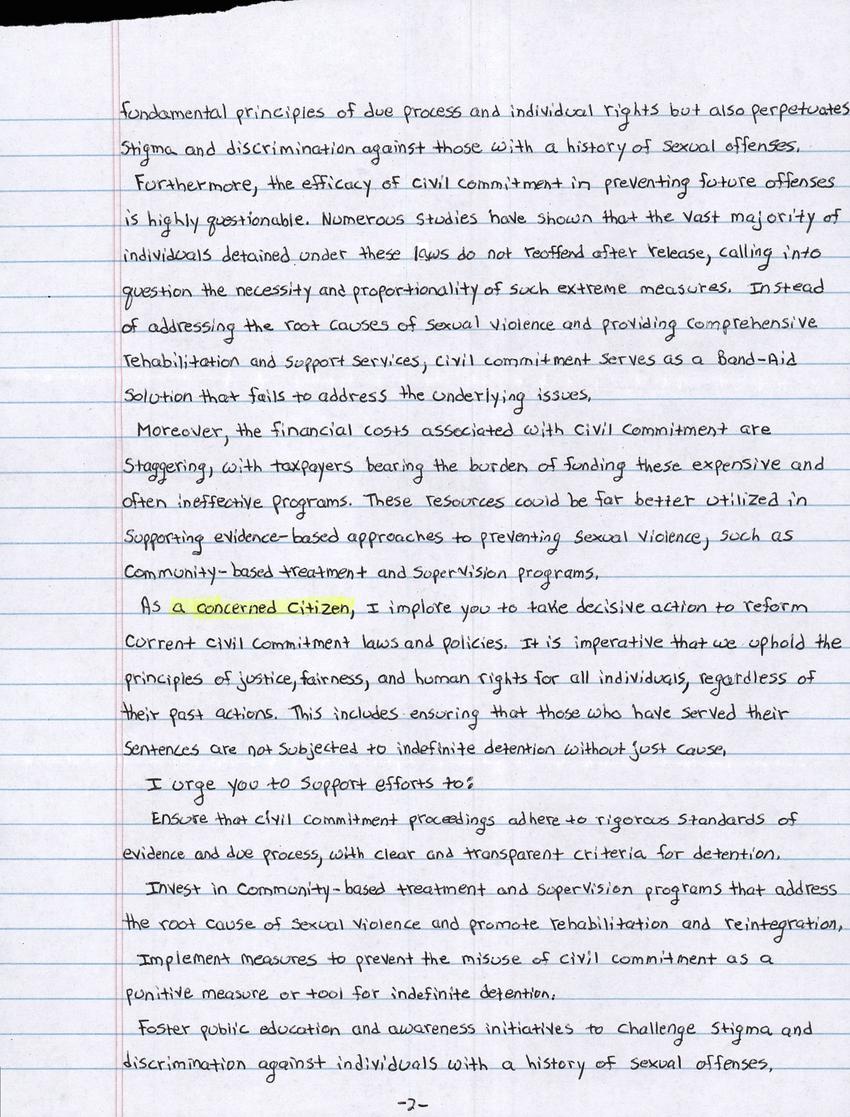 fundamental principles of due process and individual rights but also perpetuates
Stigma and discrimination against those with a history of sexual offenses.
Furthermore, the efficacy of civil commitment in preventing future offenses
is highly questionable. Numerous studies have shown that the vast majority of
individuals detained under these laws do not reoffend after release, calling into
question the necessity and proportionality of such extreme measures. Instead
of addressing the root causes of sexual violence and providing comprehensive
rehabilitation and support services, civil commitment serves as a Band-Aid
Solution that fails to address the underlying issues.
Moreover, the financial costs associated with civil commitment are
Staggering, with taxpayers bearing the burden of funding these expensive and
often ineffective programs. These resources could be far better utilized in
supporting evidence-based approaches to preventing sexual violence, such as
Community-based treatment and supervision programs.
As a concerned citizen, I implore you to take decisive action to reform
current civil commitment laws and policies. It is imperative that we uphold the
principles of justice, fairness, and human rights for all individuals, regardless of
their past actions. This includes ensuring that those who have served their
sentences are not subjected to indefinite detention without just cause.
I urge you to support efforts to:
Ensure that civil commitment proceedings adhere to rigorous standards of
evidence and due process, with clear and transparent criteria for detention.
Invest in Community-based treatment and supervision programs that address
the root cause of sexual violence and promote rehabilitation and reintegration.
Implement measures to prevent the misuse of civil commitment as a
punitive measure or tool for indefinite detention.
Foster public education and awareness initiatives to challenge stigma and
discrimination against individuals with a history of sexual offenses.
-2-